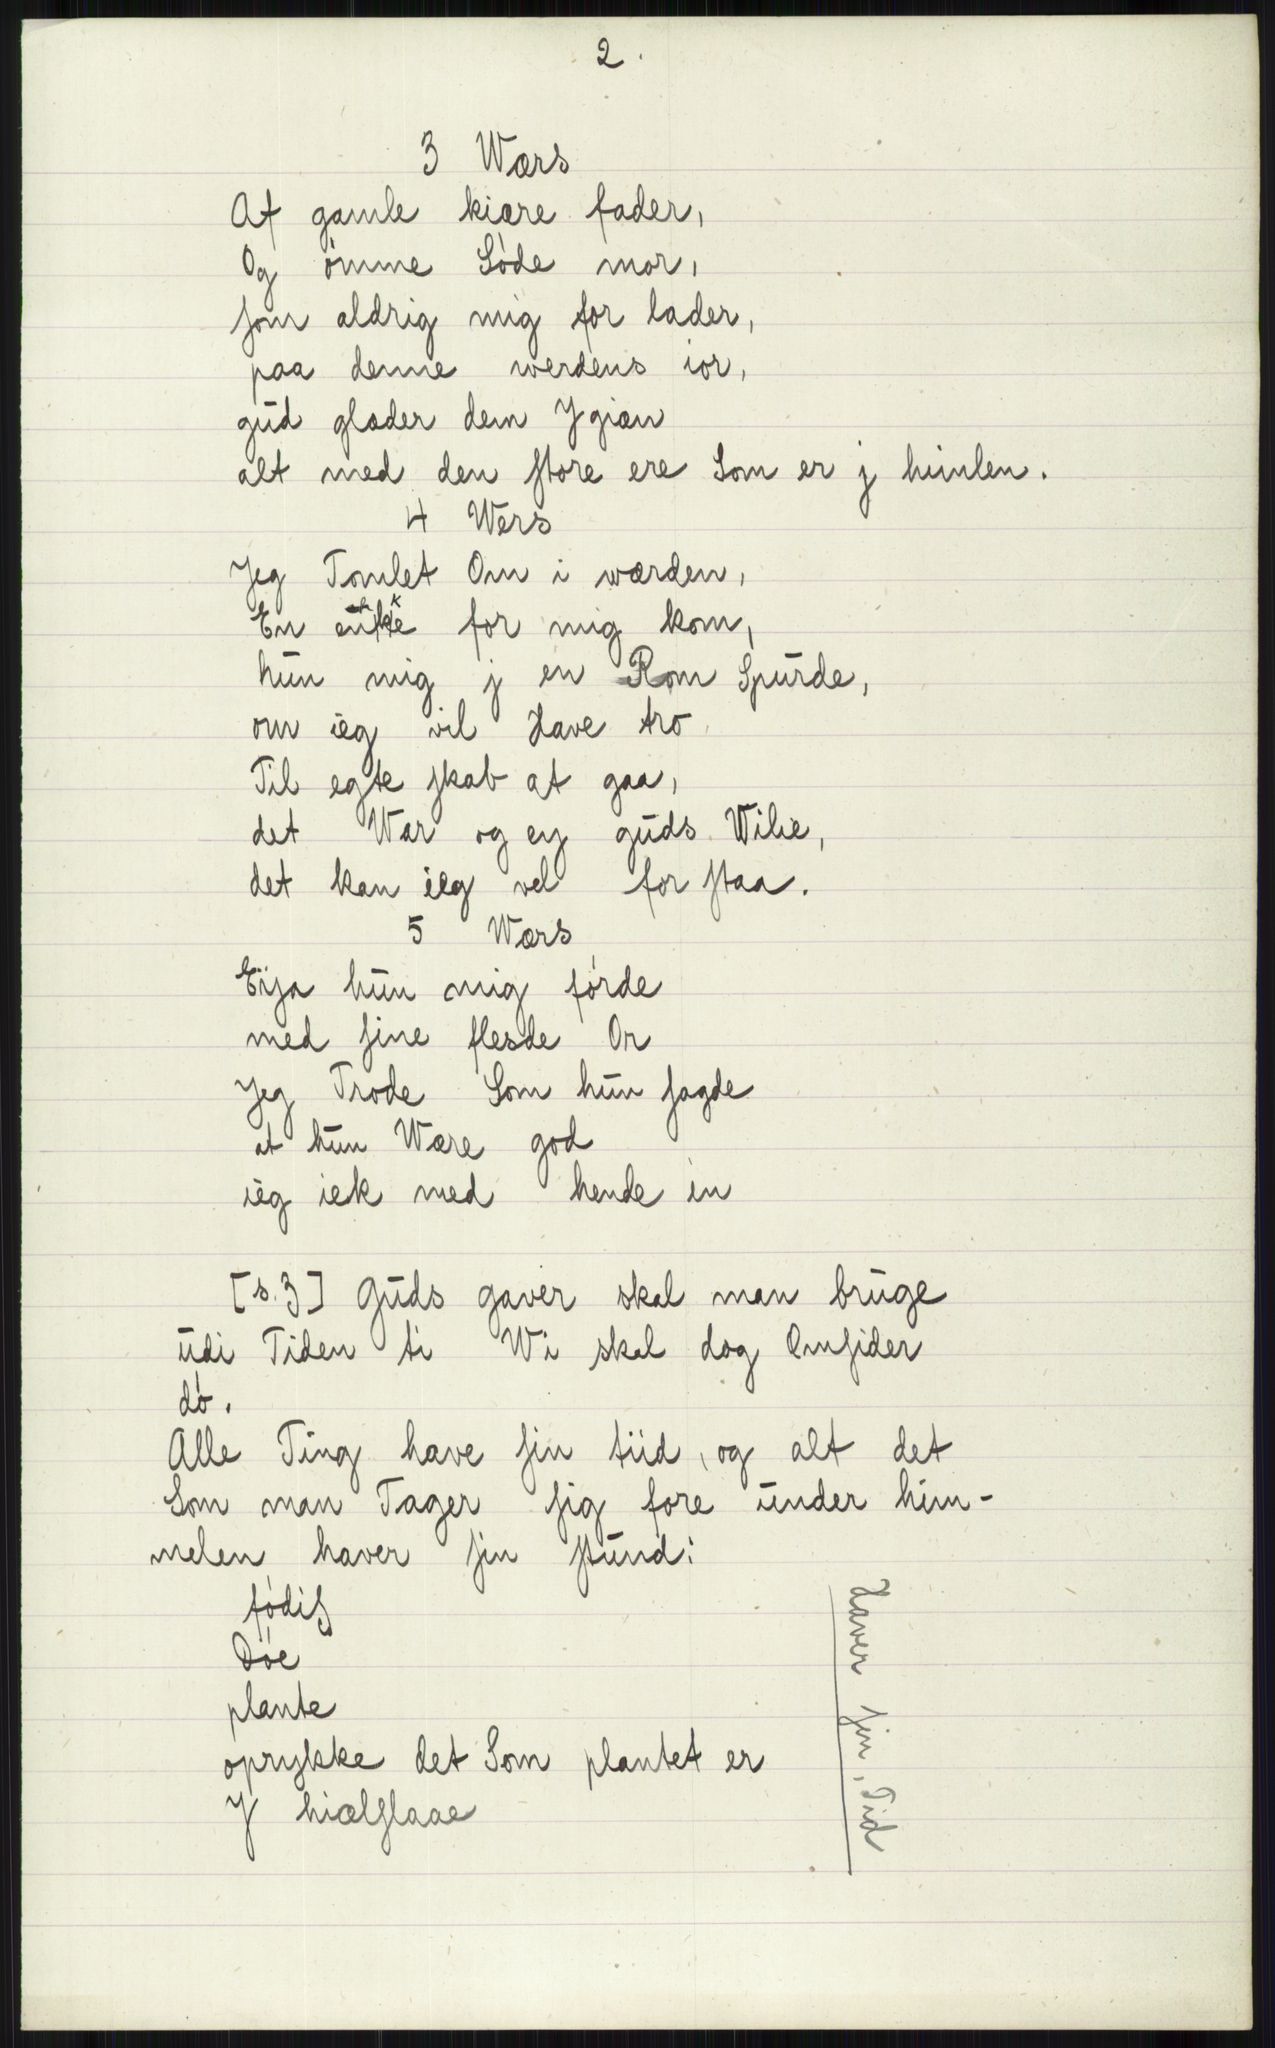 2.
3 Wærs
Af gamle kiære fader,
Og ømme Søde mor,
som aldrig mig for lader,
paa denne werdens ior,
gud glæder dem Y giæn
alt med den store ere Som er j himlen.
4 Wers
Jeg Tomlet Om i wærden,
En enke for mig kom,
hun mig j en Rom Spurde,
om ieg vil Have tro
Til egte skab at gaa,
det War og ey guds Wilie,
det kan ieg vel for staa.
5 Wærs
Eija hun mig førde
med sine flesde Or
Jeg Trode Som hun sagde
at hun Wære god
ieg iek med hende in
[s.3] Guds gaver skal man bruge
udi Tiden ti Wi skal dog Omsider
dø.
Alle Ting have sin tiid, og alt det
Som man Tager sig fore under him-
melen haver sin stund:
fødis
Døe
plante
oprykke det Som plantet er
Y hiælslaae
Haver sin Tid